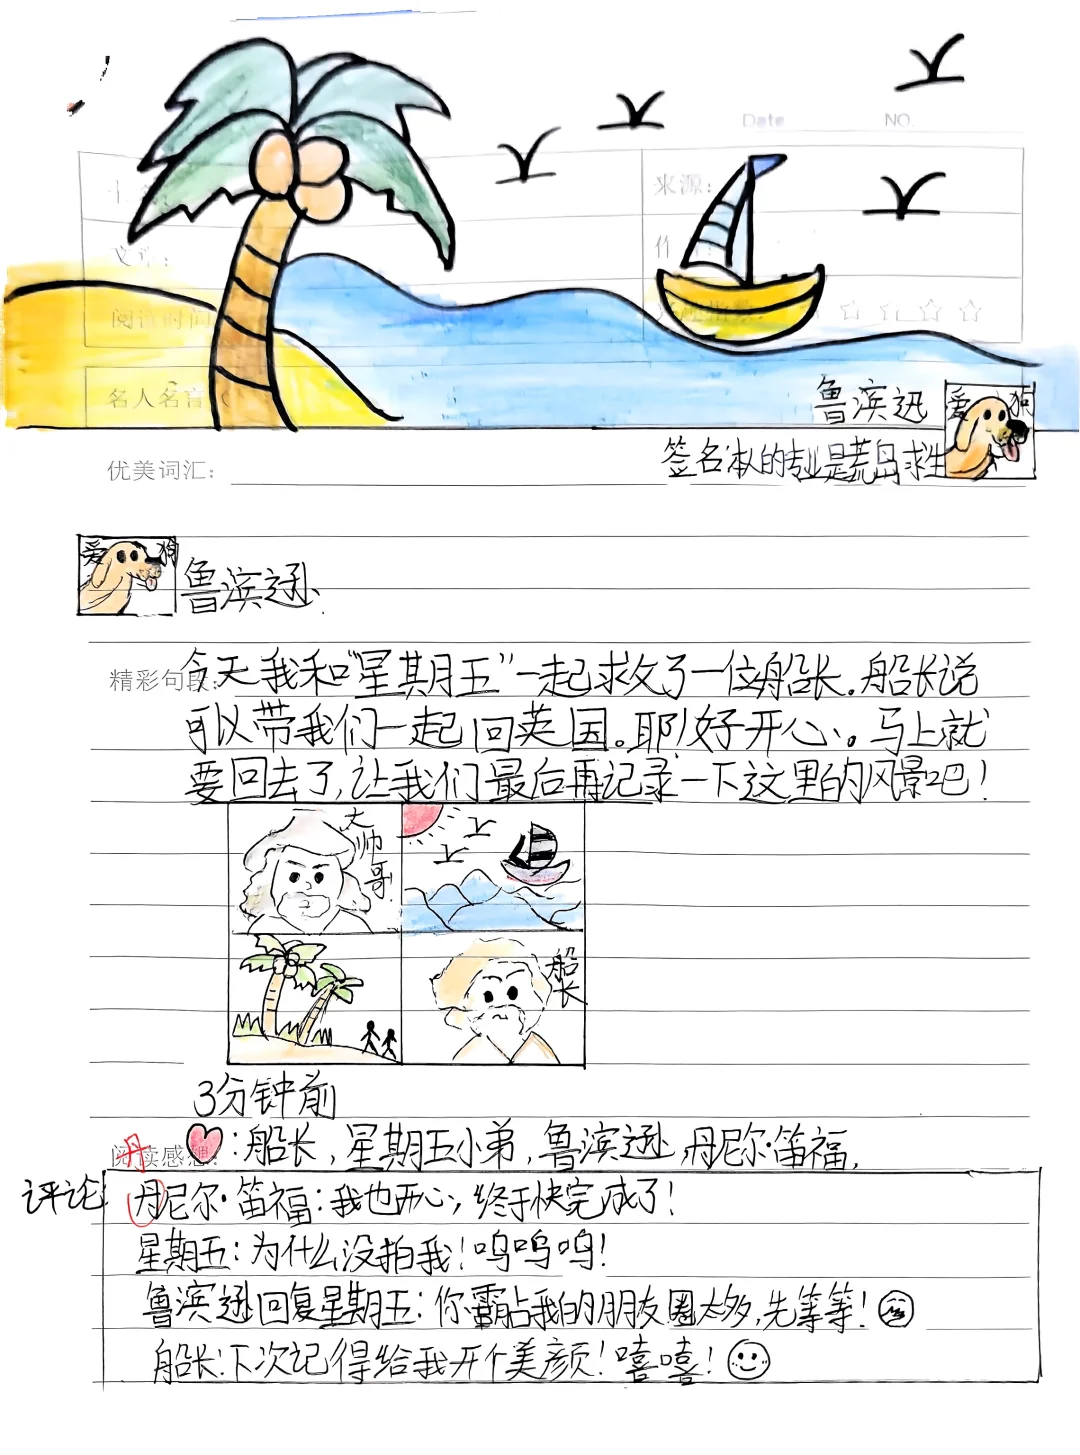 Date NO.
来源：
阅读时间
名人名言
鲁滨迅
爱 狗
签名:本人的专业是荒岛求生
优美词汇：
爱 狗
鲁滨逊
精彩句段：
今天我和“星期五”一起求攵了一位船长.船长说
可以带我们一起回英国。耶!好开心。马上就
要回去了,让我们最后再记录一下这里的风景吧!
大帅哥
船长
3分钟前
阅读感想：
丹
:船长,星期五小弟,鲁滨逊,丹尼尔·笛福,
评论:
丹尼尔·笛福:我也开心,终于快完成了!
星期五:为什么没拍我!呜呜呜!
鲁滨逊回复星期五:你霸占我的朋友圈太多,先等等!
船长:下次记得给我开个美颜!嘻嘻!